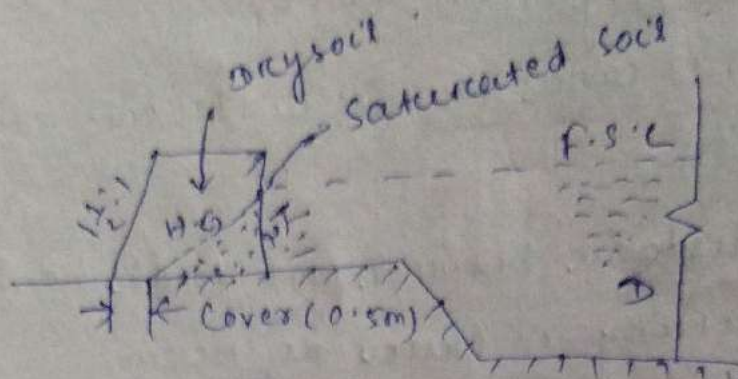 Drysoil
Saturated soil
F.S.L
1½:1
H.G
Cover (0.5m)
D